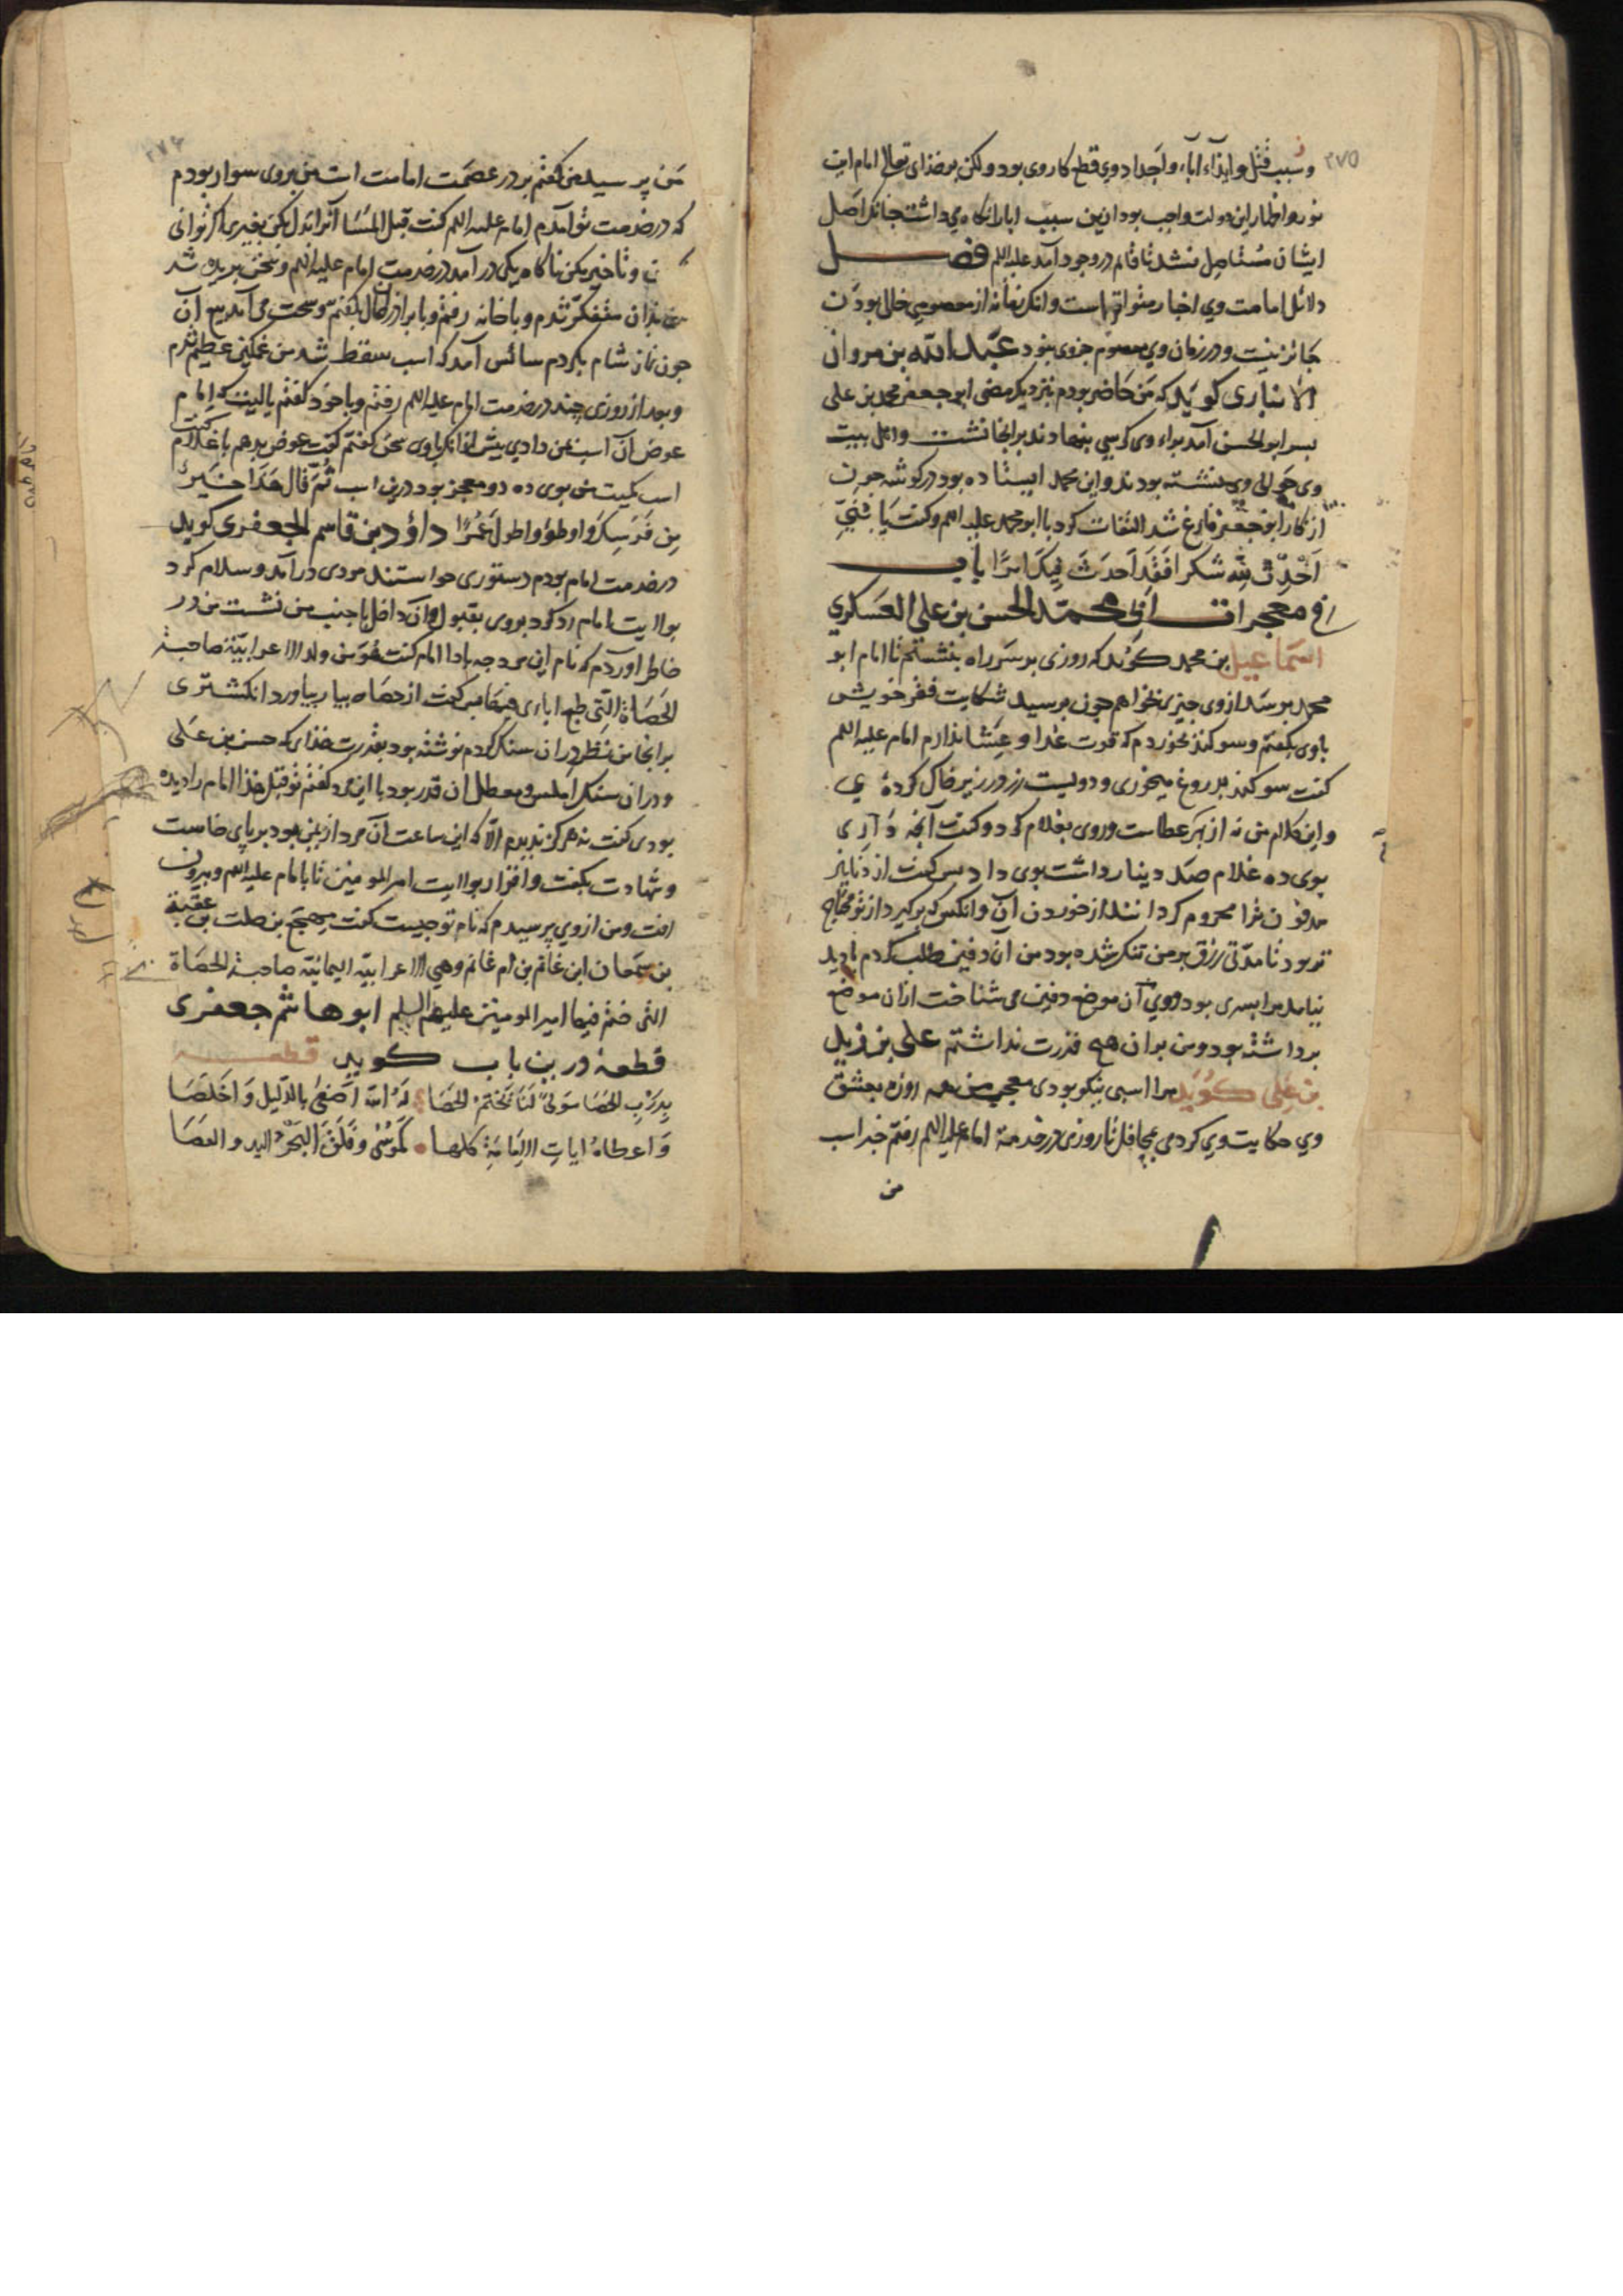 ۲۷۵
و سبب قتل و ایذاء آباء و اجداد وی قطع کار وی بود ولکن بر خدای تعالی امام این
نور و اظهار این دولت واجب بود ازین سبب ابا را نکاه می داشت چنانک اصل
ایشان مستاصل نشد تا قائم در وجود آمد علیه السلم فصل
دلائل امامت وی اخبار متواتر است وانک زمانه از معصومی خالی بودن
جائز نیست و در زمان وی معصوم جزوی نبود عبد الله بن مروان
الانباری کوید که من حاضر بودم نزدیک مضی ابو جعفر محمد بن علی
بسر ابو الحسن آمد براء وی کرسی بنهادند بر انجا نشست و اهل بیت
وی حوالی وی نشسته بودند و ابن محمد ایستاده بود در کوشه جون
از کار ابو جعفر فارغ شد التفات کرد با ابو محمد علیه السلم و کفت یا بنی
احدث لله شکرا فقد احدث فیک امرا باب
در معجزات ابی محمد الحسن بن علی العسکری
اسماعیل بن محمد کوید که روزی بر سر راه بنشستم تا امام ابو
محمد برسد از وی چیزی بخواهم جون برسید شکایت فقر خویش
باوی بکفتم و سوکند بخوردم که قوت غدا و عشا ندارم امام علیه السلم
کفت سوکند بدروغ میخوری و دویست زر در زیر خاک کردهٔ ی
و این کلام من نه از بهر عطاست و روی بغلام کرد و کفت آنچه داری
بوی ده غلام صد دینار داشت بوی داد بس کفت از دنانیر
مدفون ترا محروم کردانند از خوردن آن و انکس که برکیرد از تو محتاج
تر بود تا مدتی رزق بر من تنک شده بود من آن دفین طلب کردم بادید
نیامد مرا بسری بود روی آن موضع دفین می شناخت ازان موضع
برداشته بود و من بران هیچ قدرت نداشتم علی بن زید
بن علی کوید مرا اسبی نیکو بودی معجب من همه روزه بعشق
وی حکایت وی کردمی بمحافل تا روزی در خدمة امام علیه السلم رفتم خبر اسب
من
۲۷۶
من پرسید من کفتم بر در عصمت امامت است من بروی سوار بودم
که در خدمت تو آمدم امام علیه السلم کفت قبل المسا آنرا بدل کن بغیری اکر توانی
و تاخیر مکن ناکاه یکی در آمد در خدمت امام علیه السلم و سخن بریده شد
من بدان متفکر شدم و با خانه رفتم و با برادر ان حال بکفتم و سخت می آمد بیع آن
جون نماز شام بکردم سائس آمد که اسب سقط شد من غمکین عظیم شدم
و بعد از روزی چند در خدمت امام علیه السلم رفتم و با خود کفتم یا لیت که امام
عوض آن اسب بمن دادی بیش از انک باوی سخن کفتم کفت عوض بدهم با غلام کفت
اسب کمیت من بوی ده دو معجز بود درین اسب ثم قال هذا خیر
من فرسک و اوطؤ و اطول عمرا داؤد بن قاسم الجعفری کوید
در خدمت امام بودم دستوری خواستند مردی در آمد و سلام کرد
بولایت امام رد کرد بروی بقبول و آن داخل با جنب من نشست من در
خاطر آوردم که نام این مرد چه باد امام کفت هو من ولد الاعرابیة صاحبة
الحصاة التی طبع ابائی فیها بس کفت از حصاه بیار بیاورد انکشتری
بر انجا من نظر دران سنک کردم نوشته بود بقدرت خدای که حسن بن علی
و دران سنک املس و معطل ان قدر بود با این مرد کفتم تو قبل هذا امام را دیده
بودی کفت نه هرکز ندیدم الا که این ساعت آن مرد از بنی هود بر پای خاست
و شهادت بکفت و اقرار بولایت امیر المومنین تا با امام علیه السلم و بیرون
رفت و من از وی پرسیدم که نام تو چیست کفت مهجع بن صلت بن عقبة
بن سمعان ابن غانم بن ام غانم وهی الاعرابیة الیمانیة صاحبة الحصاة
التی ختم فیها امیر المومنین علیهم السلم ابو هاشم جعفری
قطعهٔ درین باب کوید قطعه
بدرب الحصا مولی لنا یختم الحصا له الله اصفی بالدلیل و اخلصا
و اعطاه ایات الامامة کلها کموسی و فلق البحر و الید و العصا